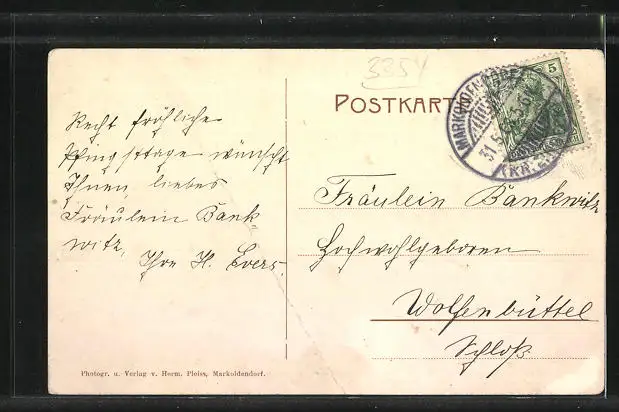 3354
POSTKARTE
MARKOLDENDORF
31.5.
5
Recht fröhliche
Pfingsttage wünscht
Ihnen, liebes
Fräulein Bank-
witz,
Ihre H. Evers.
Fräulein Bankwitz
Hochwohlgeboren
Wolfenbüttel
Schloß
Photogr. u. Verlag v. Herm. Pleiss, Markoldendorf.